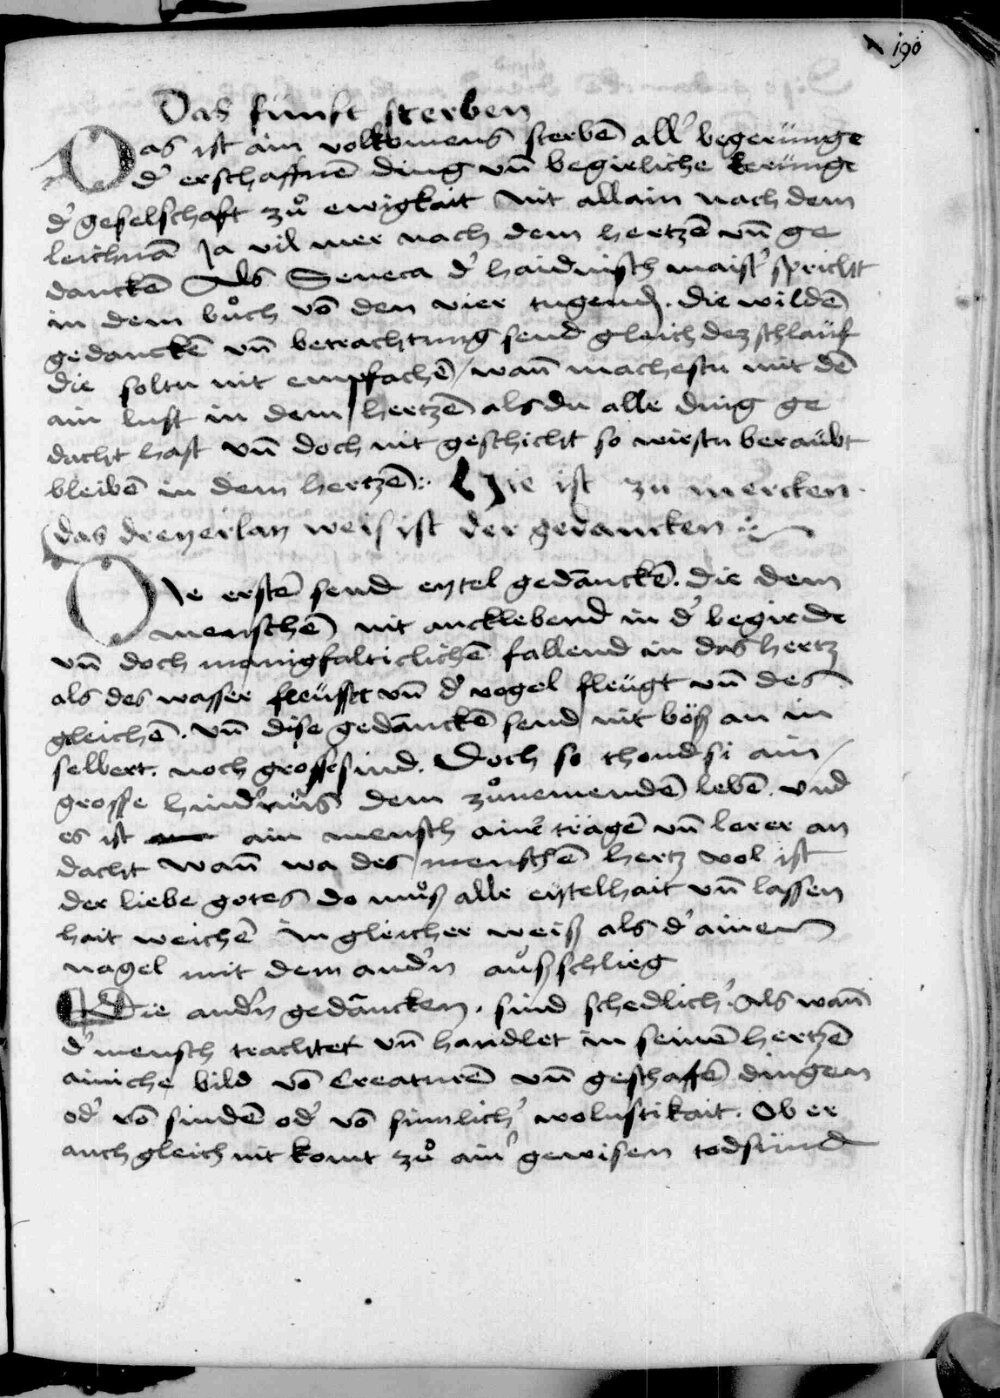 190
Das funft sterben
Das ist ain volkomens sterbē all' begerunge
d' erschaffnē ding vn̄ begirliche berunge
d' geselschaft zů ewigkait nit allain nach dem
leichnā Ja vil mer nach dem hertzē vn̄ ge
danckē Als Seneca d' haidnisch maist' spricht
in dem bůch vō den vier tugend. die wildē
gedanckē vn̄ betrachtung send gleich dez schlauf
die soltu nit empfachē / wan̄ machestu mit dē
ain lust in dem hertzē als du alle ding ge
dacht hast vn̄ doch nit geschicht so wirstu beraubt
bleibē in dem hertzē :. Hie ist zu mercken
das dreyerlay weis ist der gedancken
Die erstē send eytel gedanckē. die dem
menschē nit ancklebend in d' begirde
vn̄ doch manigfalticlichē fallend in das hertz
als des wasser fleusset vn̄ d' vogel fleugt vn̄ des
gleichē. vn̄ dise gedanckē send nit böß an in
selbert. noch grosse sind. Doch so thond si ain
grosse hind'nüs dem zůnemendē lebē. vnd
es ist ain mensch ain' tragē vn̄ lerer an
dacht wan̄ wa des menschē hertz vol ist
der liebe gotes do můß alle eytelhait vn̄ lassen
hait weichē in gleicher weiß als d' ainen
nagel mit dem and'n außschlieg
Die and'n gedancken. sind schedlich'. Als wan̄
d' mensch trachtet vn̄ handlet in seinē hertzē
ainiche bild vō Creaturē vn̄ geschaffē dingen
od' vō sindē od' vō sinnlich' wolustikait. Ob er
auch gleich nit komt zů ain' gewisen todsund